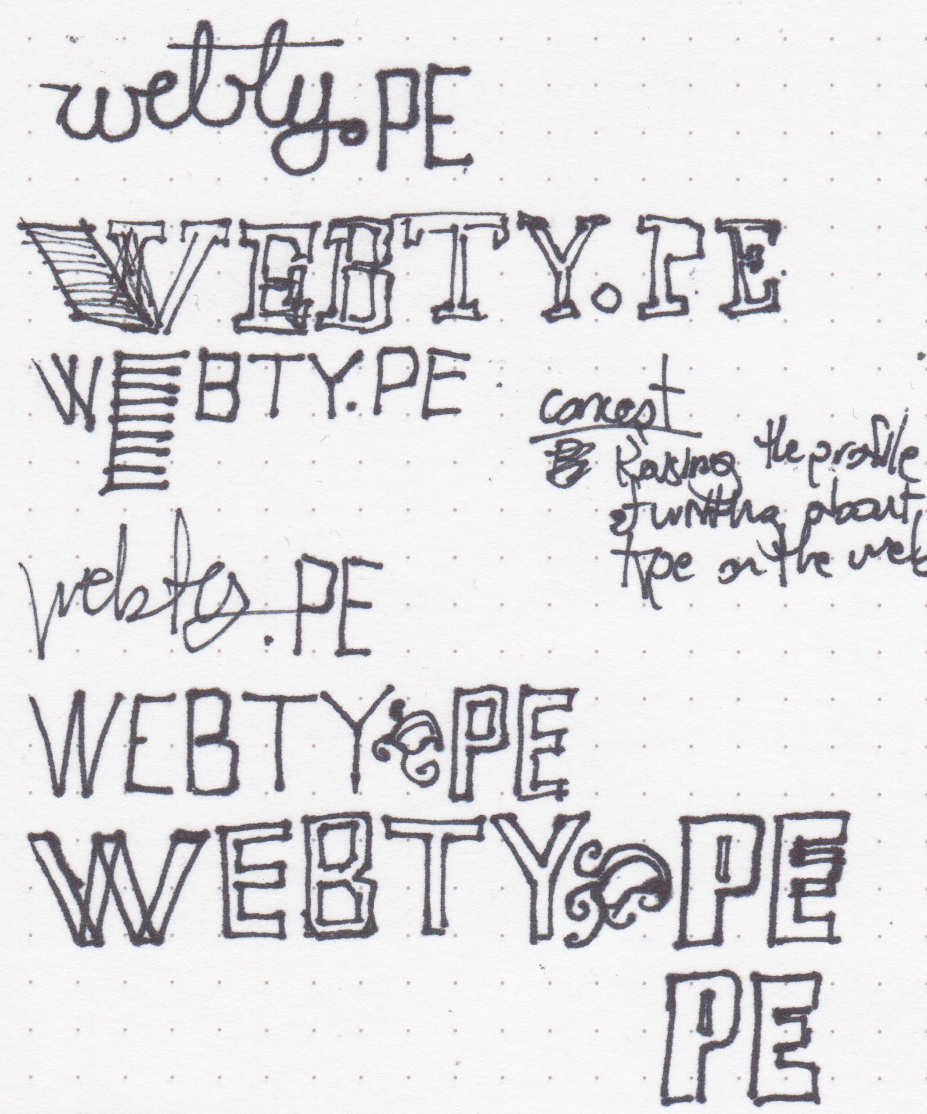 webty.PE
WEBTY.PE
WEBTY.PE
concept
Raising the profile
of writing about
type on the web
webty.PE
WEBTY PE
WEBTY PE
PE